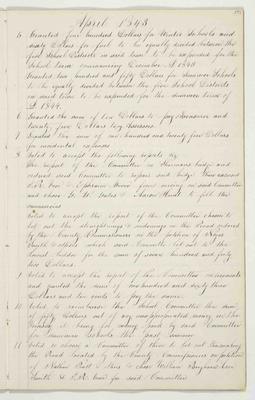 April 1843
5 Granted four hundred Dollars for Winter Schools and
sixty Dollars for fuel to be equally divided between the
five School Districts in said town to be expended for the
School term commencing December A.D. 1843
Granted two hundred and fifty Dollars for Summer Schools
to be equally divided between the five School Districts
in said town to be expended for the summer term of
A.D. 1844.
6 Granted the sum of ten Dollars to pay Assessors and
twenty five Dollars
7 Granted the sum of one hundred and twenty five Dollars
for incidental expenses
8 Voted to accept the following reports
The report of the Committee on bridge and
ordered said Committee to repair said bridge
& Ephraim from serving on said Committee
and chose & Aaron to fill the
vacancies
Voted to accept the report of the Committee chosen to
let out the straightning & widening on the Road ordered
by the County Commissioners on the petition of
Smith & others which said Committee let out to the
lowest bidder for the sum of seven hundred and forty
two Dollars
9 Voted to accept the report of the Committee
and granted the sum of two hundred and sixty three
Dollars and ten cents to pay the same
10 Voted to reimburse the School Committee the sum
of fifty Dollars out of any unappropriated money in the
Treasury it being for money paid by said Committee
for Summer Schools the past summer
11 Voted to choose a Committee of three to let out the making
the Road located by the County Commissioners on petition
of Nathan Pratt & others & chose William
Smith & for said Committee